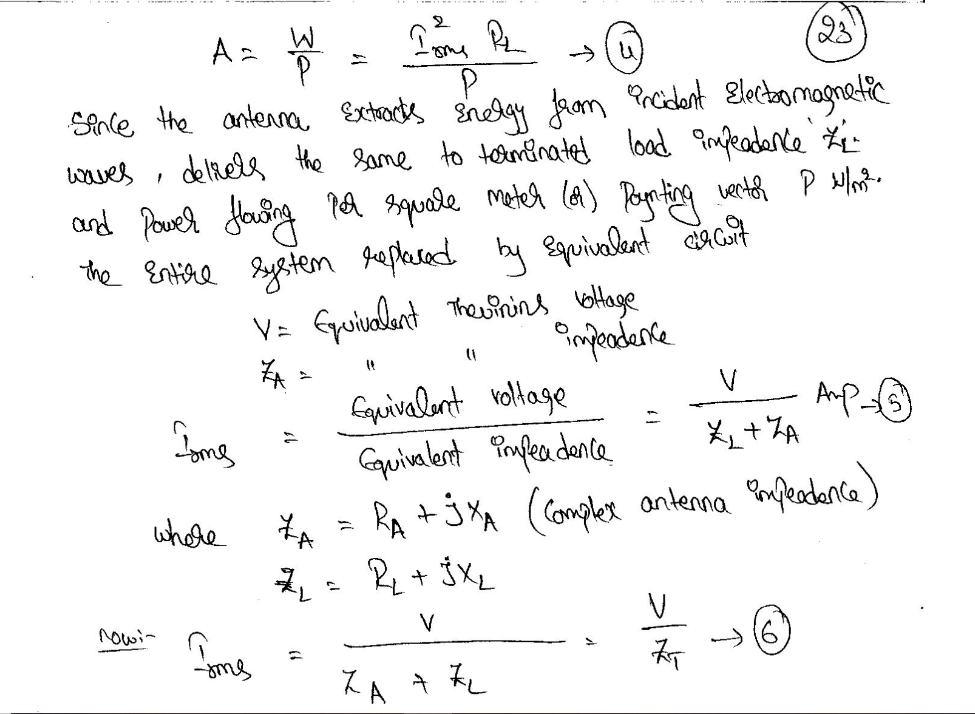 23
A = W/P = I²rms RL / P → 4
Since the antenna Extracts Energy from incident Electromagnetic
waves, delivers the same to terminated load impeadence ZL.
and Power flowing Per square meter (or) Poynting vector P W/m².
The Entire system replaced by Equivalent circuit
V = Equivalent Thevinins voltage
ZA = " " impeadence
Irms = Equivalent voltage / Equivalent impeadence = V / ZL + ZA Amp → 5
where ZA = RA + jXA (Complex antenna impeadence)
ZL = RL + jXL
Now:- Irms = V / ZA + ZL = V / ZT → 6